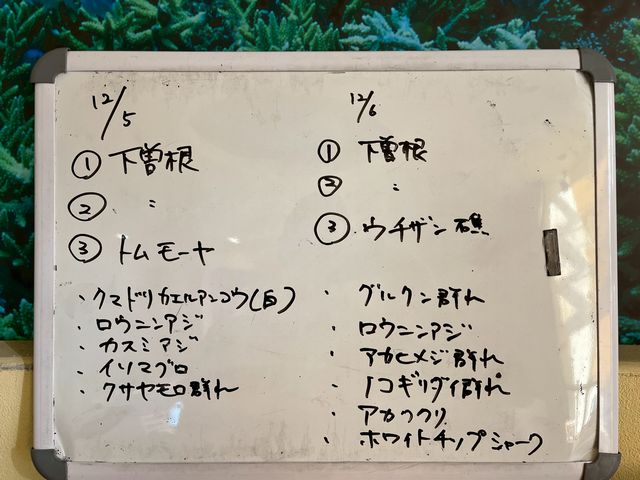 12/5
① 下曽根
② 〃
③ トムモーヤ
・クマドリカエルアンコウ(白)
・ロウニンアジ
・カスミアジ
・イソマグロ
・クサヤモロ群れ
12/6
① 下曽根
② 〃
③ ウチザン礁
・グルクン群れ
・ロウニンアジ
・アカヒメジ群れ
・ノコギリダイ群れ
・アカククリ
・ホワイトチップシャーク